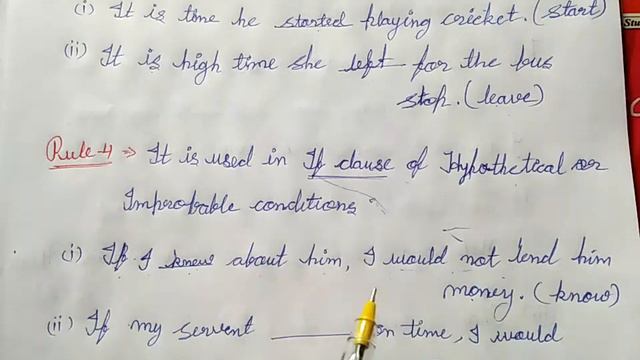 (i) It is time he started playing cricket. (start)
(ii) It is high time she left for the bus
stop. (leave)
Rule-4 → It is used in If clause of Hypothetical or
Improbable conditions
(i) If I knew about him, I would not lend him
money. (know)
(ii) If my servent ______ on time, I would